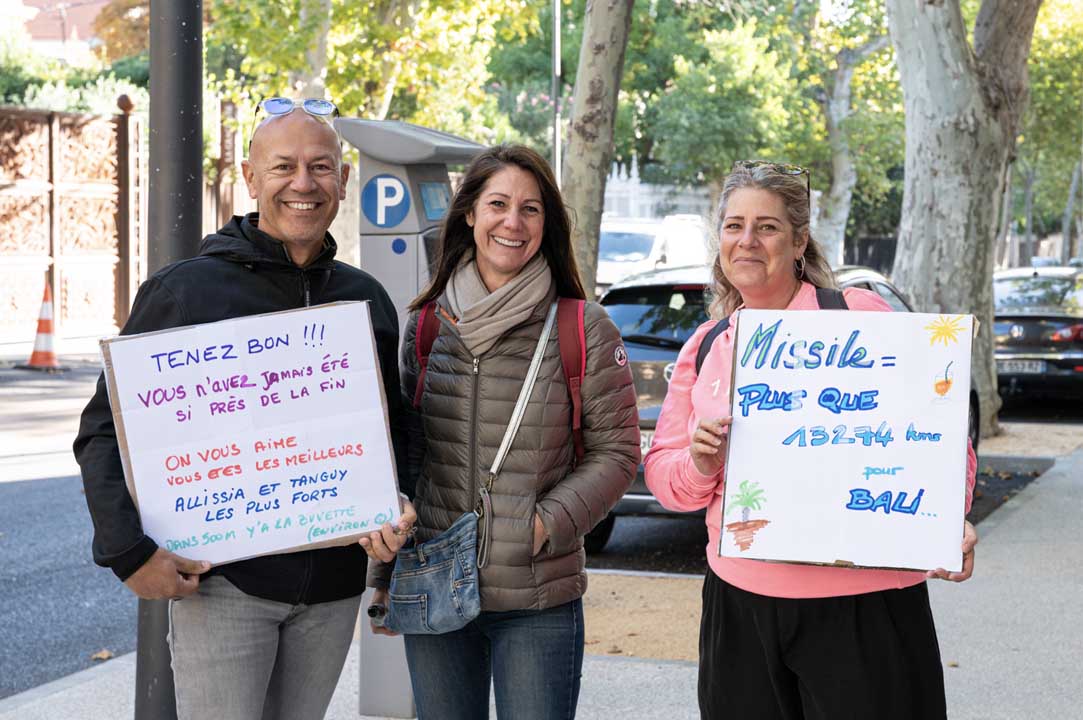 TENEZ BON !!!
VOUS N'AVEZ JAMAIS ÉTÉ
SI PRÈS DE LA FIN
ON VOUS AIME
VOUS ETES LES MEILLEURS
ALLISSIA ET TANGUY
LES PLUS FORTS
DANS 500M Y'A LA BUVETTE
(ENVIRON ☺)
P
Missile =
PLUS QUE
13274 kms
pour
BALI...